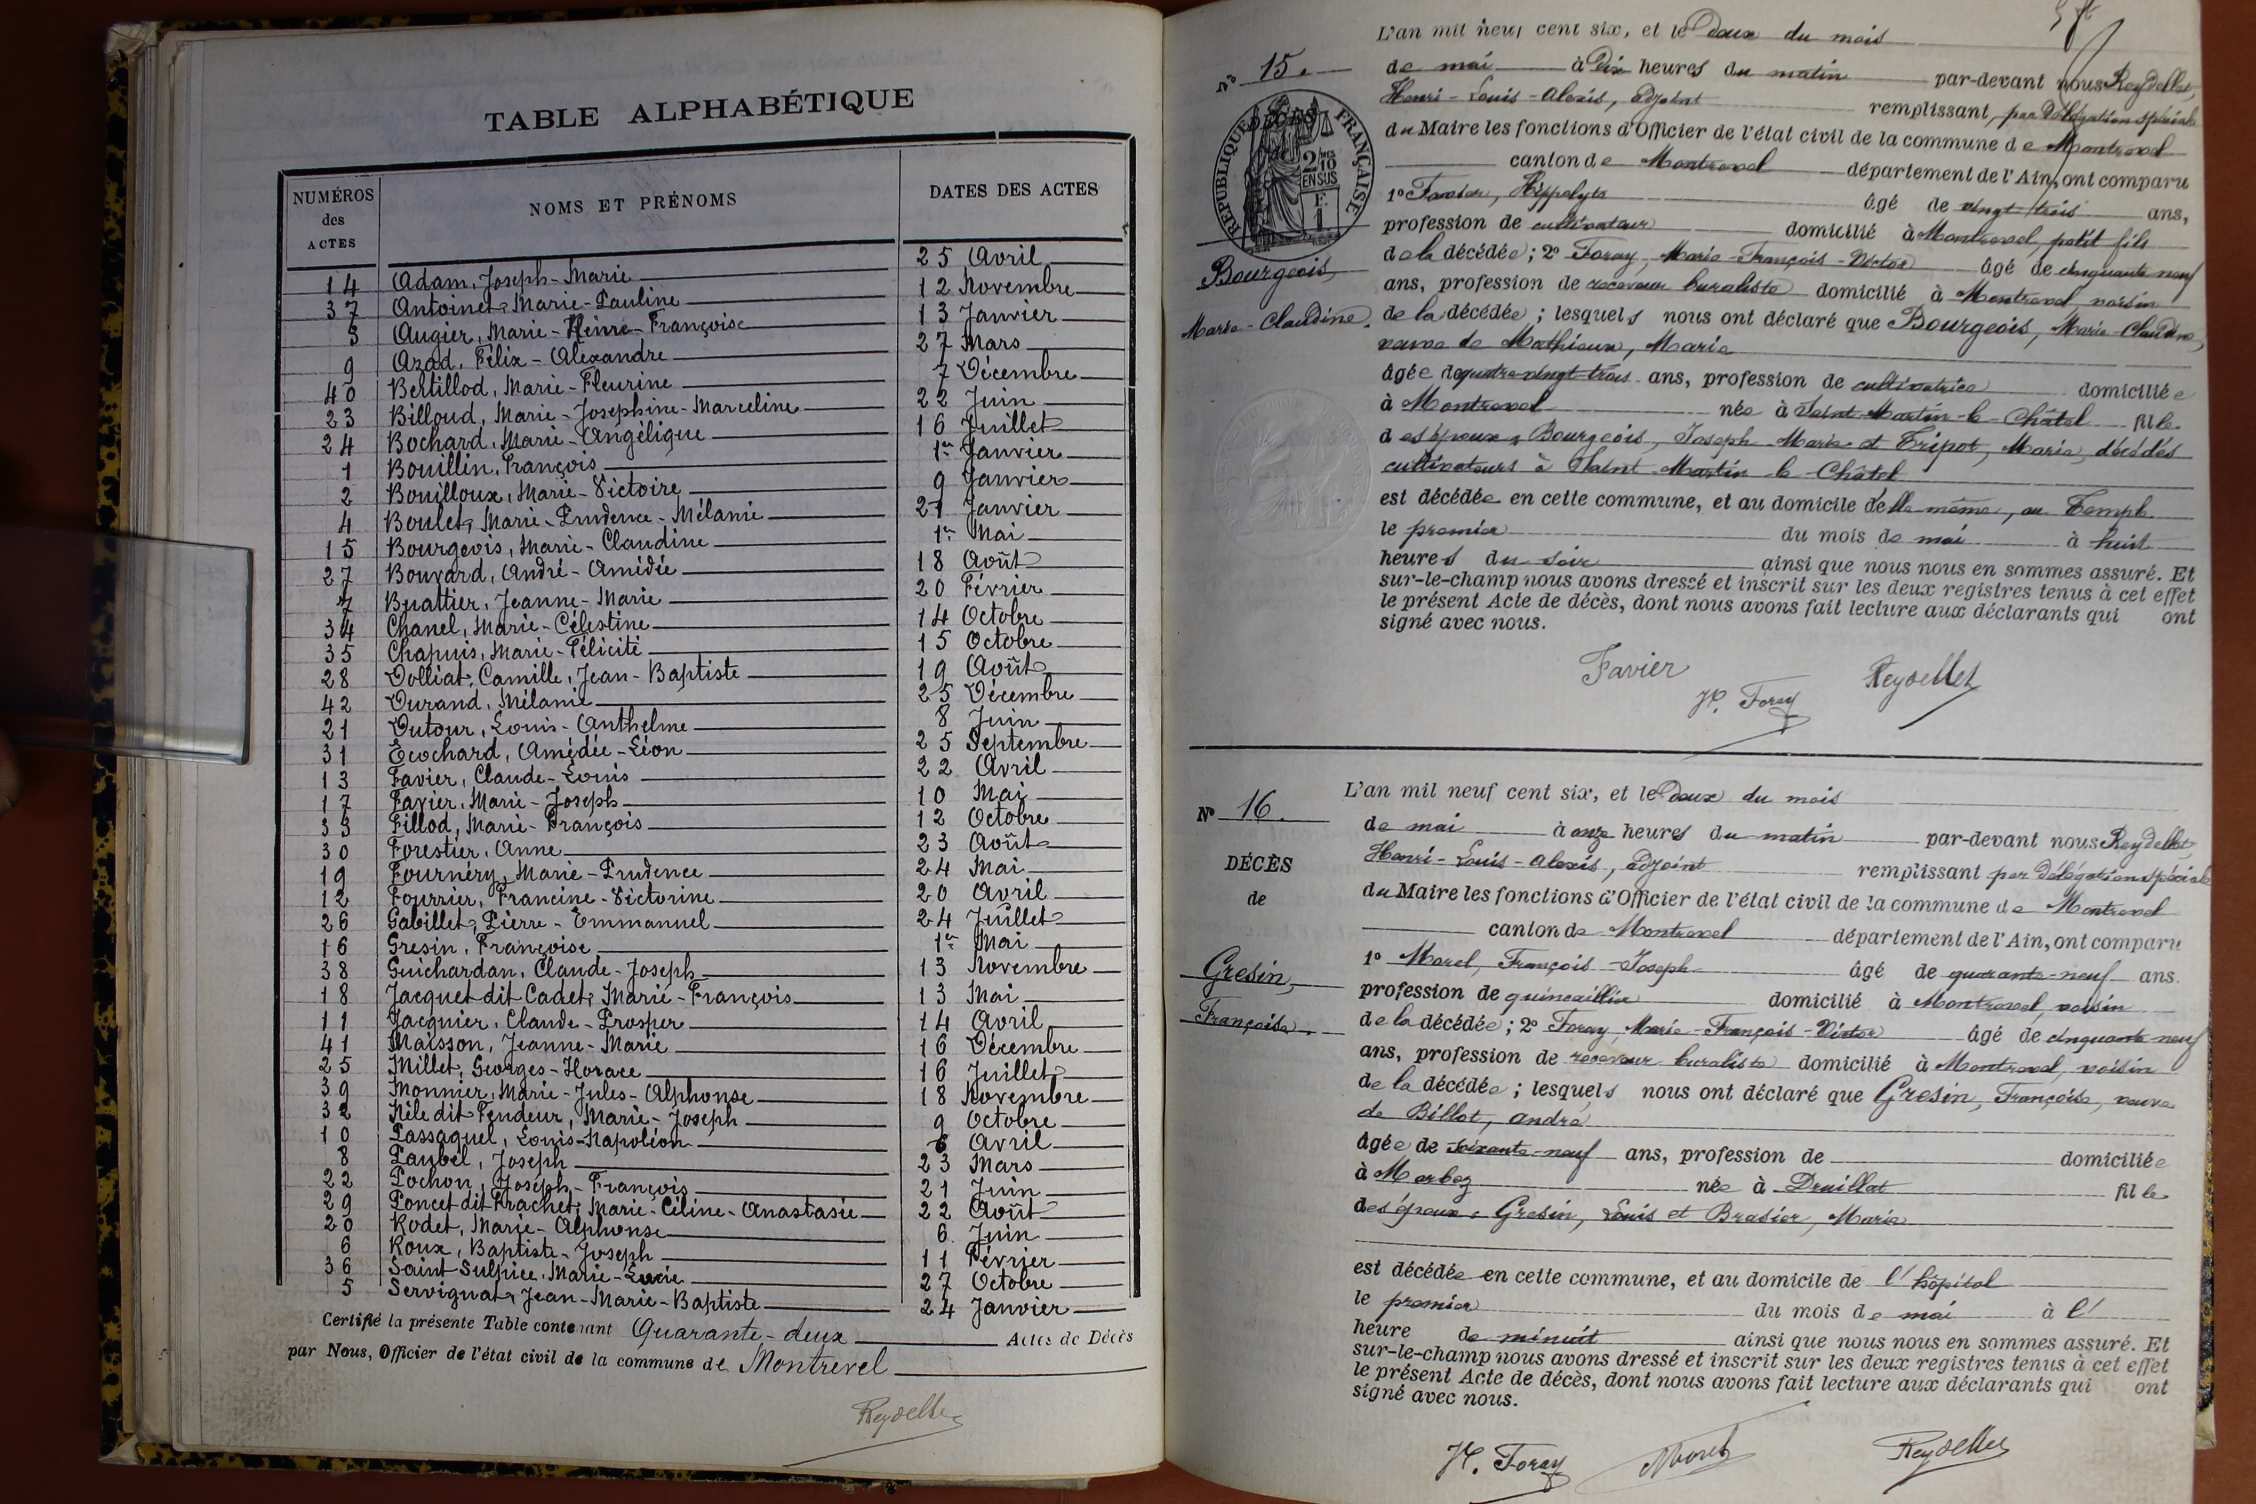 TABLE ALPHABÉTIQUE
NUMÉROS des ACTES NOMS ET PRÉNOMS DATES DES ACTES
14 Adam, Joseph-Marie 25 Avril
37 Antoinet, Marie-Pauline 12 Novembre
3 Augier, Marie-Henre-Françoise 13 Janvier
9 Azad, Félix-Alexandre 27 Mars
40 Bertillod, Marie-Fleurine 7 Décembre
23 Billoud, Marie-Josephine-Marceline 22 Juin
24 Bochard, Marie-Angélique 16 Juillet
1 Bouillin, François 1er Janvier
2 Bouilloux, Marie-Victoire 9 Janvier
4 Boulet, Marie-Prudence-Mélanie 21 Janvier
15 Bourgeois, Marie-Claudine 1er Mai
27 Bouvard, André-Amédée 18 Août
7 Buattier, Jeanne-Marie 20 Février
34 Chanel, Marie-Célestine 14 Octobre
35 Chapuis, Marie-Félicité 15 Octobre
28 Dolliat, Camille, Jean-Baptiste 19 Août
42 Durand, Mélanie 25 Décembre
21 Dutour, Louis-Anthelme 8 Juin
31 Ecochard, Amédée-Léon 25 Septembre
13 Favier, Claude-Louis 22 Avril
17 Favier, Marie-Joseph 10 Mai
33 Fillod, Marie-François 12 Octobre
30 Forestier, Anne 23 Août
19 Fournéry, Marie-Prudence 24 Mai
12 Fourrier, Francine-Victorine 20 Avril
26 Gabillet, Pierre-Emmanuel 24 Juillet
16 Gresin, Françoise 1er Mai
38 Guichardan, Claude-Joseph 13 Novembre
18 Jacquet dit Cadet, Marie-François 13 Mai
11 Jacquier, Claude-Prosper 14 Avril
41 Maisson, Jeanne-Marie 16 Décembre
25 Millet, Georges-Horace 16 Juillet
39 Monnier, Marie-Jules-Alphonse 18 Novembre
32 Nèle dit Pendeur, Marie-Joseph 9 Octobre
10 Passaquel, Louis-Napoléon 6 Avril
8 Paubel, Joseph 23 Mars
22 Pochon, Joseph-François 21 Juin
29 Poncet dit Frachet, Marie-Céline-Anastasie 22 Août
20 Rodet, Marie-Alphonse 6 Juin
6 Roux, Baptiste-Joseph 11 Février
36 Saint Sulpice, Marie-Lucie 27 Octobre
5 Servignat, Jean-Marie-Baptiste 24 Janvier
Certifié la présente Table contenant Quarante-deux Actes de Décès
par Nous, Officier de l'état civil de la commune de Montrevel
Reydellet
No 15.
RÉPUBLIQUE FRANÇAISE
2/10 EN SUS
F. 1
Bourgeois,
Marie-Claudine.
L'an mil neuf cent six, et le Deux du mois
de mai à Dix heures du matin par-devant nous Reydellet,
Henri-Louis-Alexis, adjoint remplissant par Délégation spéciale
du Maire les fonctions d'Officier de l'état civil de la commune de Montrevel
canton de Montrevel département de l'Ain, ont comparu
1o Favier, Hippolyte âgé de vingt trois ans,
profession de cultivateur domicilié à Montrevel, petit fils
de la décédée; 2o Foray, Marie-François-Victor âgé de cinquante neuf
ans, profession de receveur buraliste domicilié à Montrevel, voisin
de la décédée; lesquels nous ont déclaré que Bourgeois, Marie-Claudine,
veuve de Mathieux, Marie
âgée de quatre vingt trois ans, profession de cultivatrice domiciliée
à Montrevel née à Saint Martin-le-Châtel fille
des époux, Bourgeois, Joseph Marie et Tripoz, Marie, décédés
cultivateurs à Saint Martin le Châtel
est décédée en cette commune, et au domicile d'elle même, au Temple
le premier du mois de mai à huit
heures du soir ainsi que nous nous en sommes assuré. Et
sur-le-champ nous avons dressé et inscrit sur les deux registres tenus à cet effet
le présent Acte de décès, dont nous avons fait lecture aux déclarants qui ont
signé avec nous.
Favier Reydellet
H. Foray
No 16.
DÉCÈS
de
Gresin,
Françoise.
L'an mil neuf cent six, et le Deux du mois
de mai à onze heures du matin par-devant nous Reydellet
Henri-Louis-Alexis, adjoint remplissant par délégation spéciale
du Maire les fonctions d'Officier de l'état civil de la commune de Montrevel
canton de Montrevel département de l'Ain, ont comparu
1o Morel, François-Joseph âgé de quarante-neuf ans.
profession de quincaillier domicilié à Montrevel, voisin
de la décédée; 2o Foray, Marie-François-Victor âgé de cinquante neuf
ans, profession de receveur buraliste domicilié à Montrevel, voisin
de la décédée; lesquels nous ont déclaré que Gresin, Françoise, veuve
de Billot, André
âgée de soixante-neuf ans, profession de domiciliée
à Marboz née à Druillat fille
des époux, Gresin, Louis et Brasier, Marie
est décédée en cette commune, et au domicile de l'hôpital
le premier du mois de mai à l'
heure de minuit ainsi que nous nous en sommes assuré. Et
sur-le-champ nous avons dressé et inscrit sur les deux registres tenus à cet effet
le présent Acte de décès, dont nous avons fait lecture aux déclarants qui ont
signé avec nous.
H. Foray Morel Reydellet